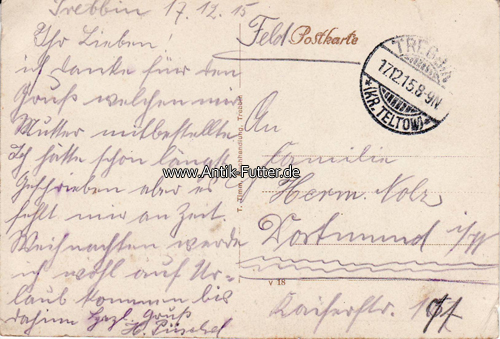 Trebbin 17.12.15
Ihr Lieben!
ich danke für den
Gruß welchen mir
Mutter mitbestellte
Ich hätte schon längst
Geschrieben aber es
fehlt mir an Zeit.
Weihnachten werde
ich wohl auf Ur-
laub kommen bis
dahin Herzl. Gruß
H. Püschel
Feld Postkarte
TREBBIN
17.12.15.8-9N
*(KR.TELTOW)*
An
Familie
Herm. Nolz
Dortmund i/W
Kaiserstr.
V 18
www.Antik-Futter.de